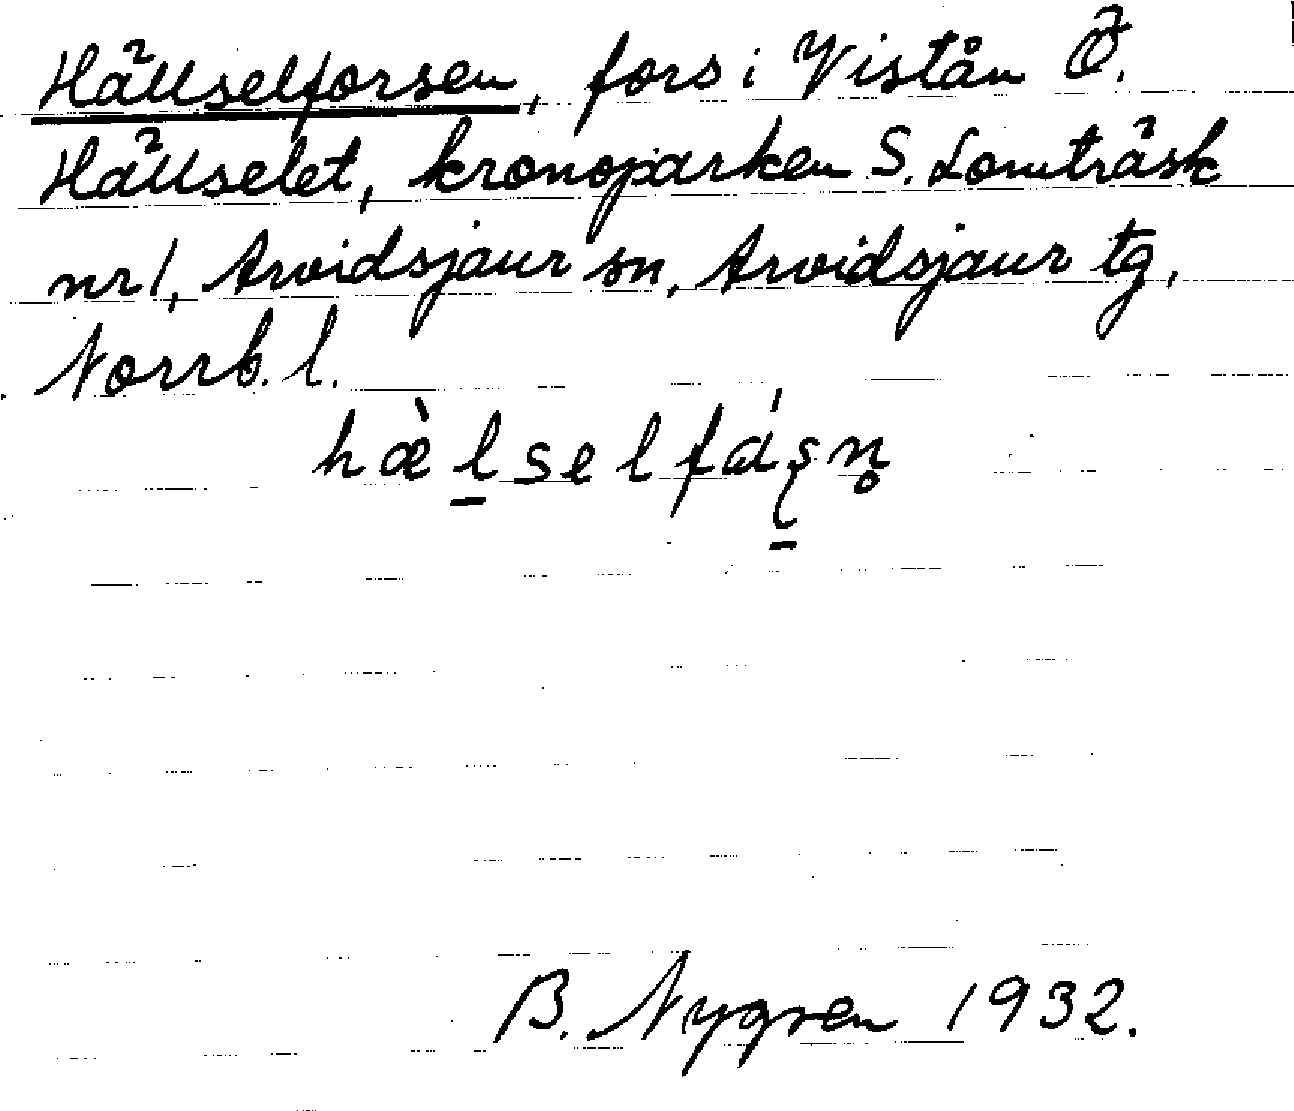 Hällselforsen, fors i Vistån Ö.
Hällselet, kronoparken S. Lomträsk
nr 1, Arvidsjaur sn, Arvidsjaur tg,
Norrb. l.
hæ̀l̠selfɑ́ʂn̥
B. Nygren 1932.